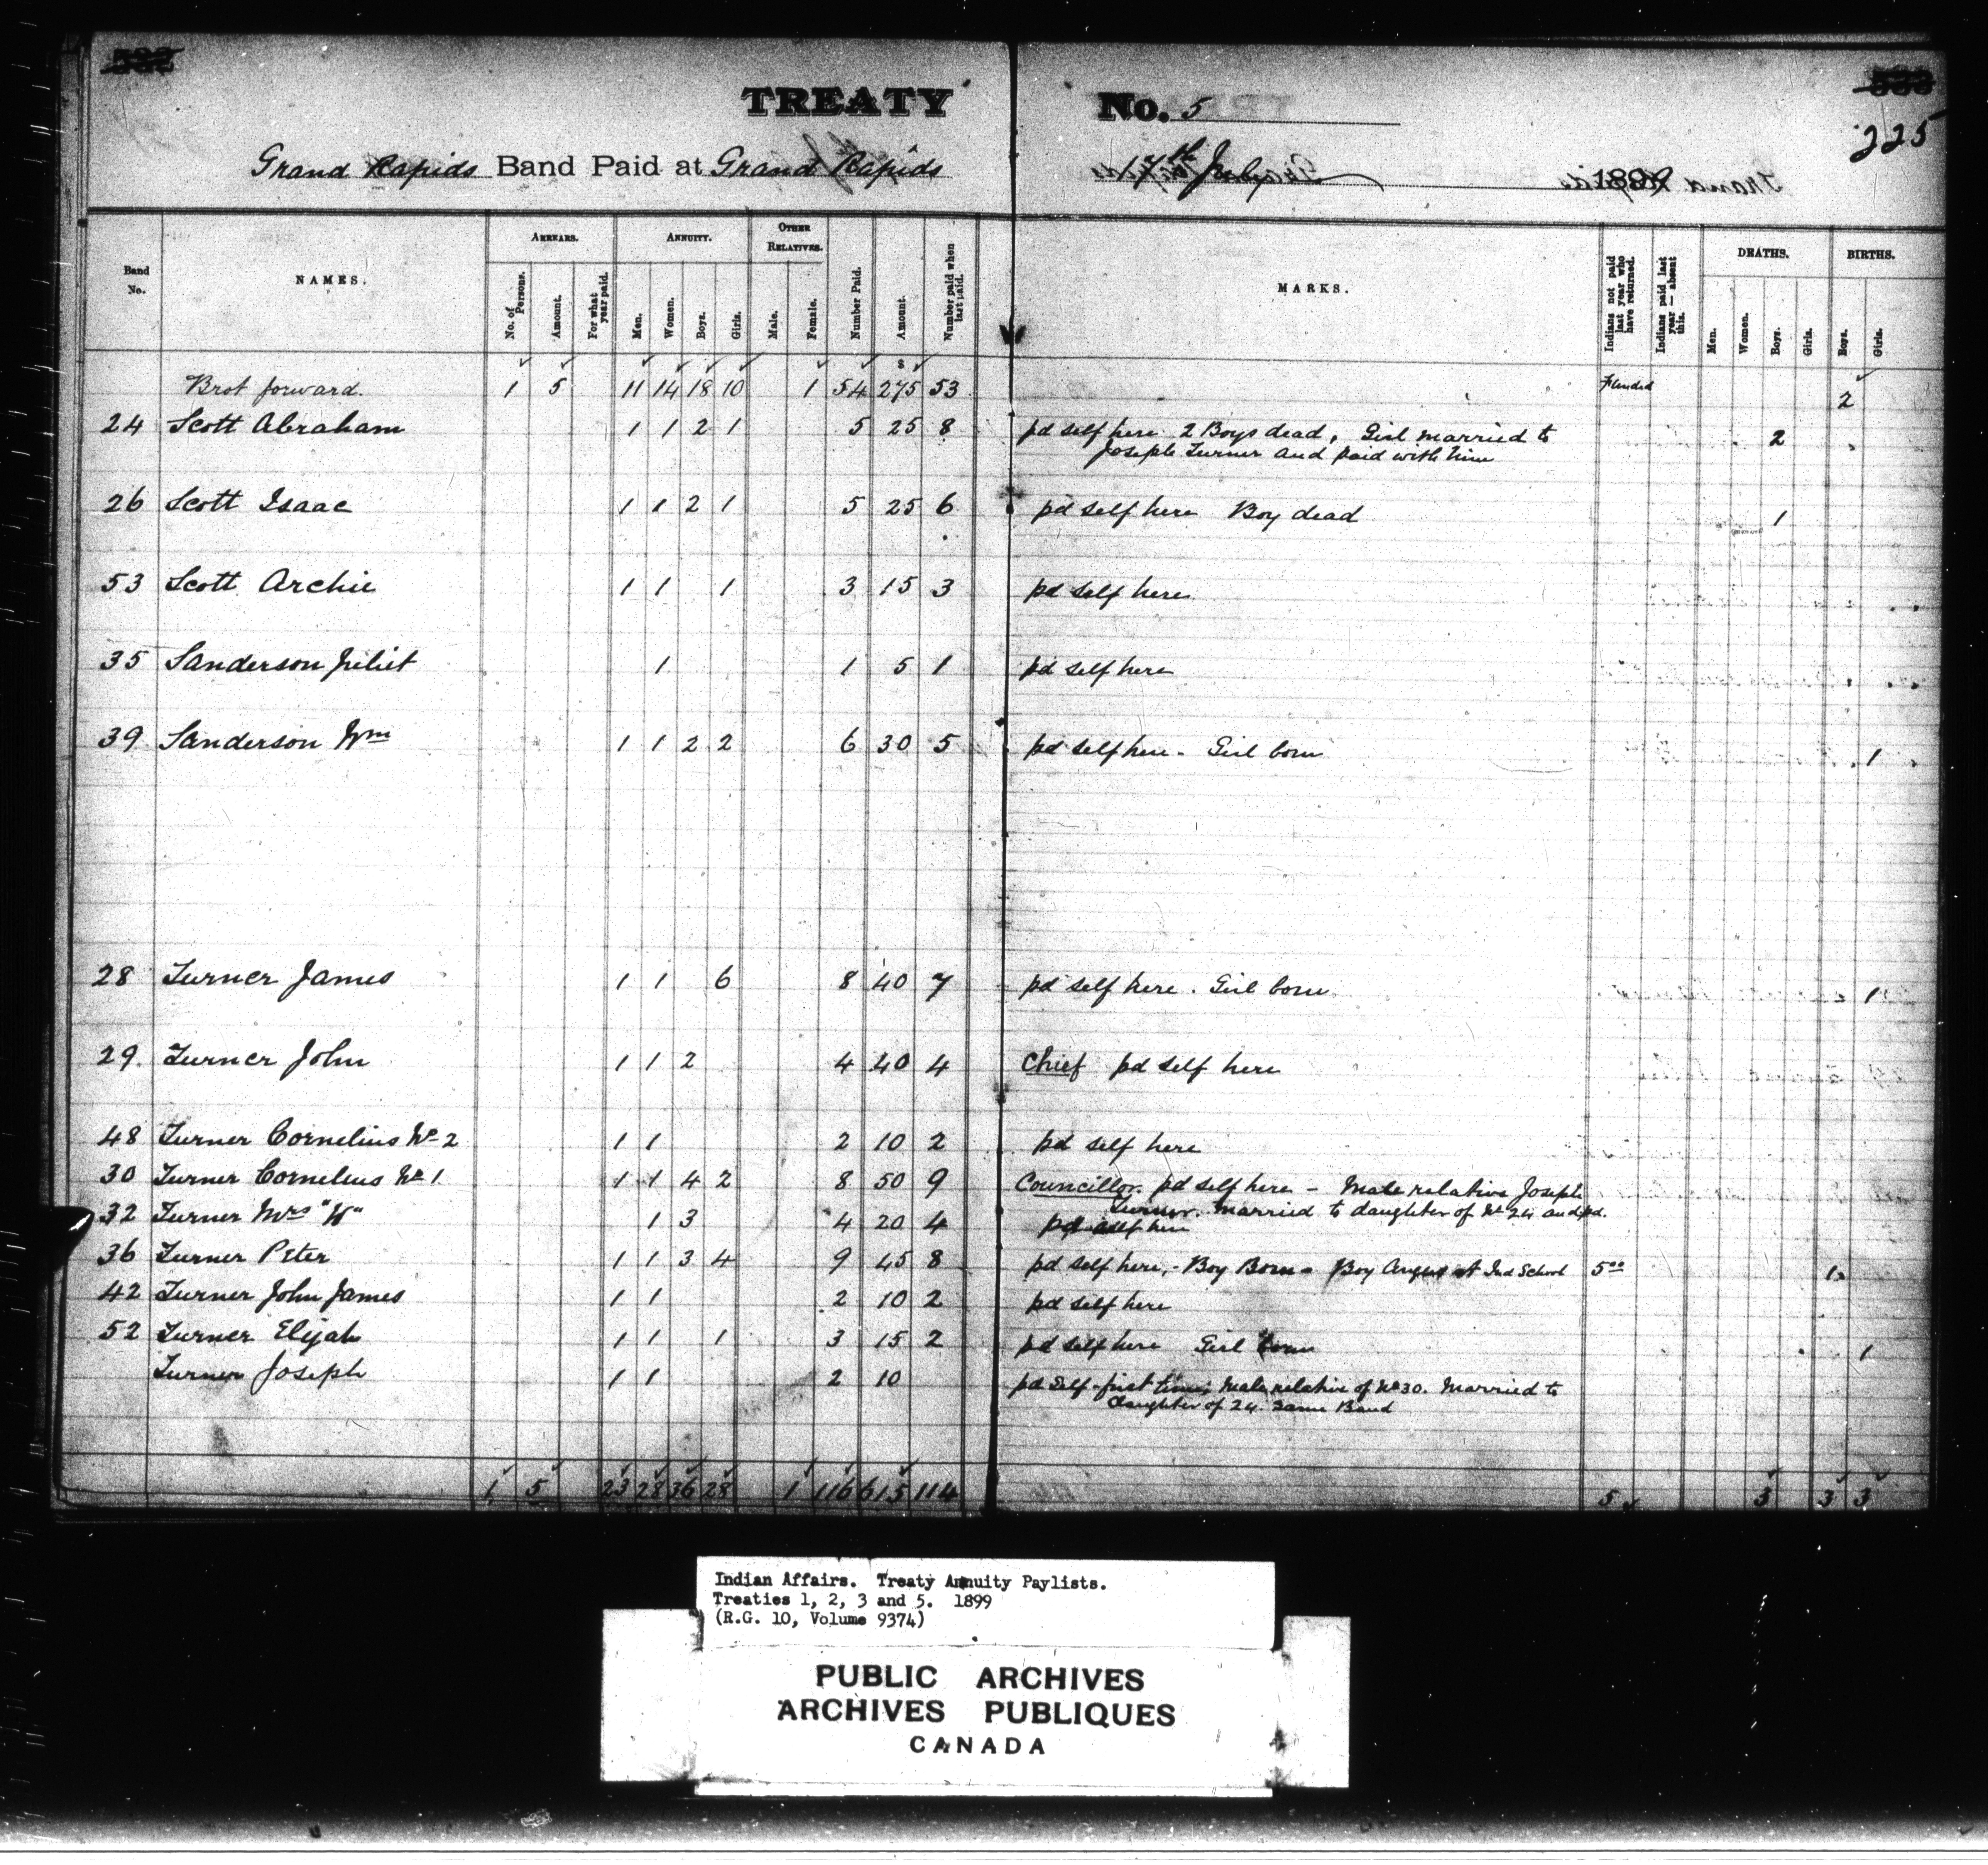 TREATY No. 5
225
Grand Rapids Band Paid at Grand Rapids 17th July 1899
Band No. NAMES. ARREARS. No. of Persons. Amount. For what year paid. ANNUITY. Men. Women. Boys. Girls. OTHER RELATIVES. Male. Female. Number Paid. Amount. Number paid when last paid. MARKS. Indians not paid last year who have returned. Indians paid last year — absent this. DEATHS. Men. Women. Boys. Girls. BIRTHS. Boys. Girls.
$
Brot forward. 1 5 11 14 18 10 1 54 275 53 2
24 Scott Abraham 1 1 2 1 5 25 8 pd self here 2 Boys dead, Girl married to 2
Joseph Turner and paid with him
26 Scott Isaac 1 1 2 1 5 25 6 pd self here Boy dead 1
53 Scott Archie 1 1 1 3 15 3 pd self here
35 Sanderson Juliet 1 1 5 1 pd self here
39 Sanderson Wm 1 1 2 2 6 30 5 pd self here - Girl born 1
28 Turner James 1 1 6 8 40 7 pd self here. Girl born 1
29. Turner John 1 1 2 4 40 4 Chief pd self here
48 Turner Cornelius No 2 1 1 2 10 2 pd self here
30 Turner Cornelius No 1 1 1 4 2 8 50 9 Councillor. pd self here - Male relative Joseph
Turner. Married to daughter of No 24 and pd.
32 Turner Mrs "W" 1 3 4 20 4 pd self here
36 Turner Peter 1 1 3 4 9 45 8 pd self here, - Boy Born - Boy Angus At Ind School 5 00 1
42 Turner John James 1 1 2 10 2 pd self here
52 Turner Elijah 1 1 1 3 15 2 pd self here Girl born 1
Turner Joseph 1 1 2 10 pd self first time, Male relative of No 30. Married to
daughter of 24. Same Band
1 5 23 28 36 28 1 116 615 114 5 3 3 3
Indian Affairs. Treaty Annuity Paylists.
Treaties 1, 2, 3 and 5. 1899
(R.G. 10, Volume 9374)
PUBLIC ARCHIVES
ARCHIVES PUBLIQUES
CANADA